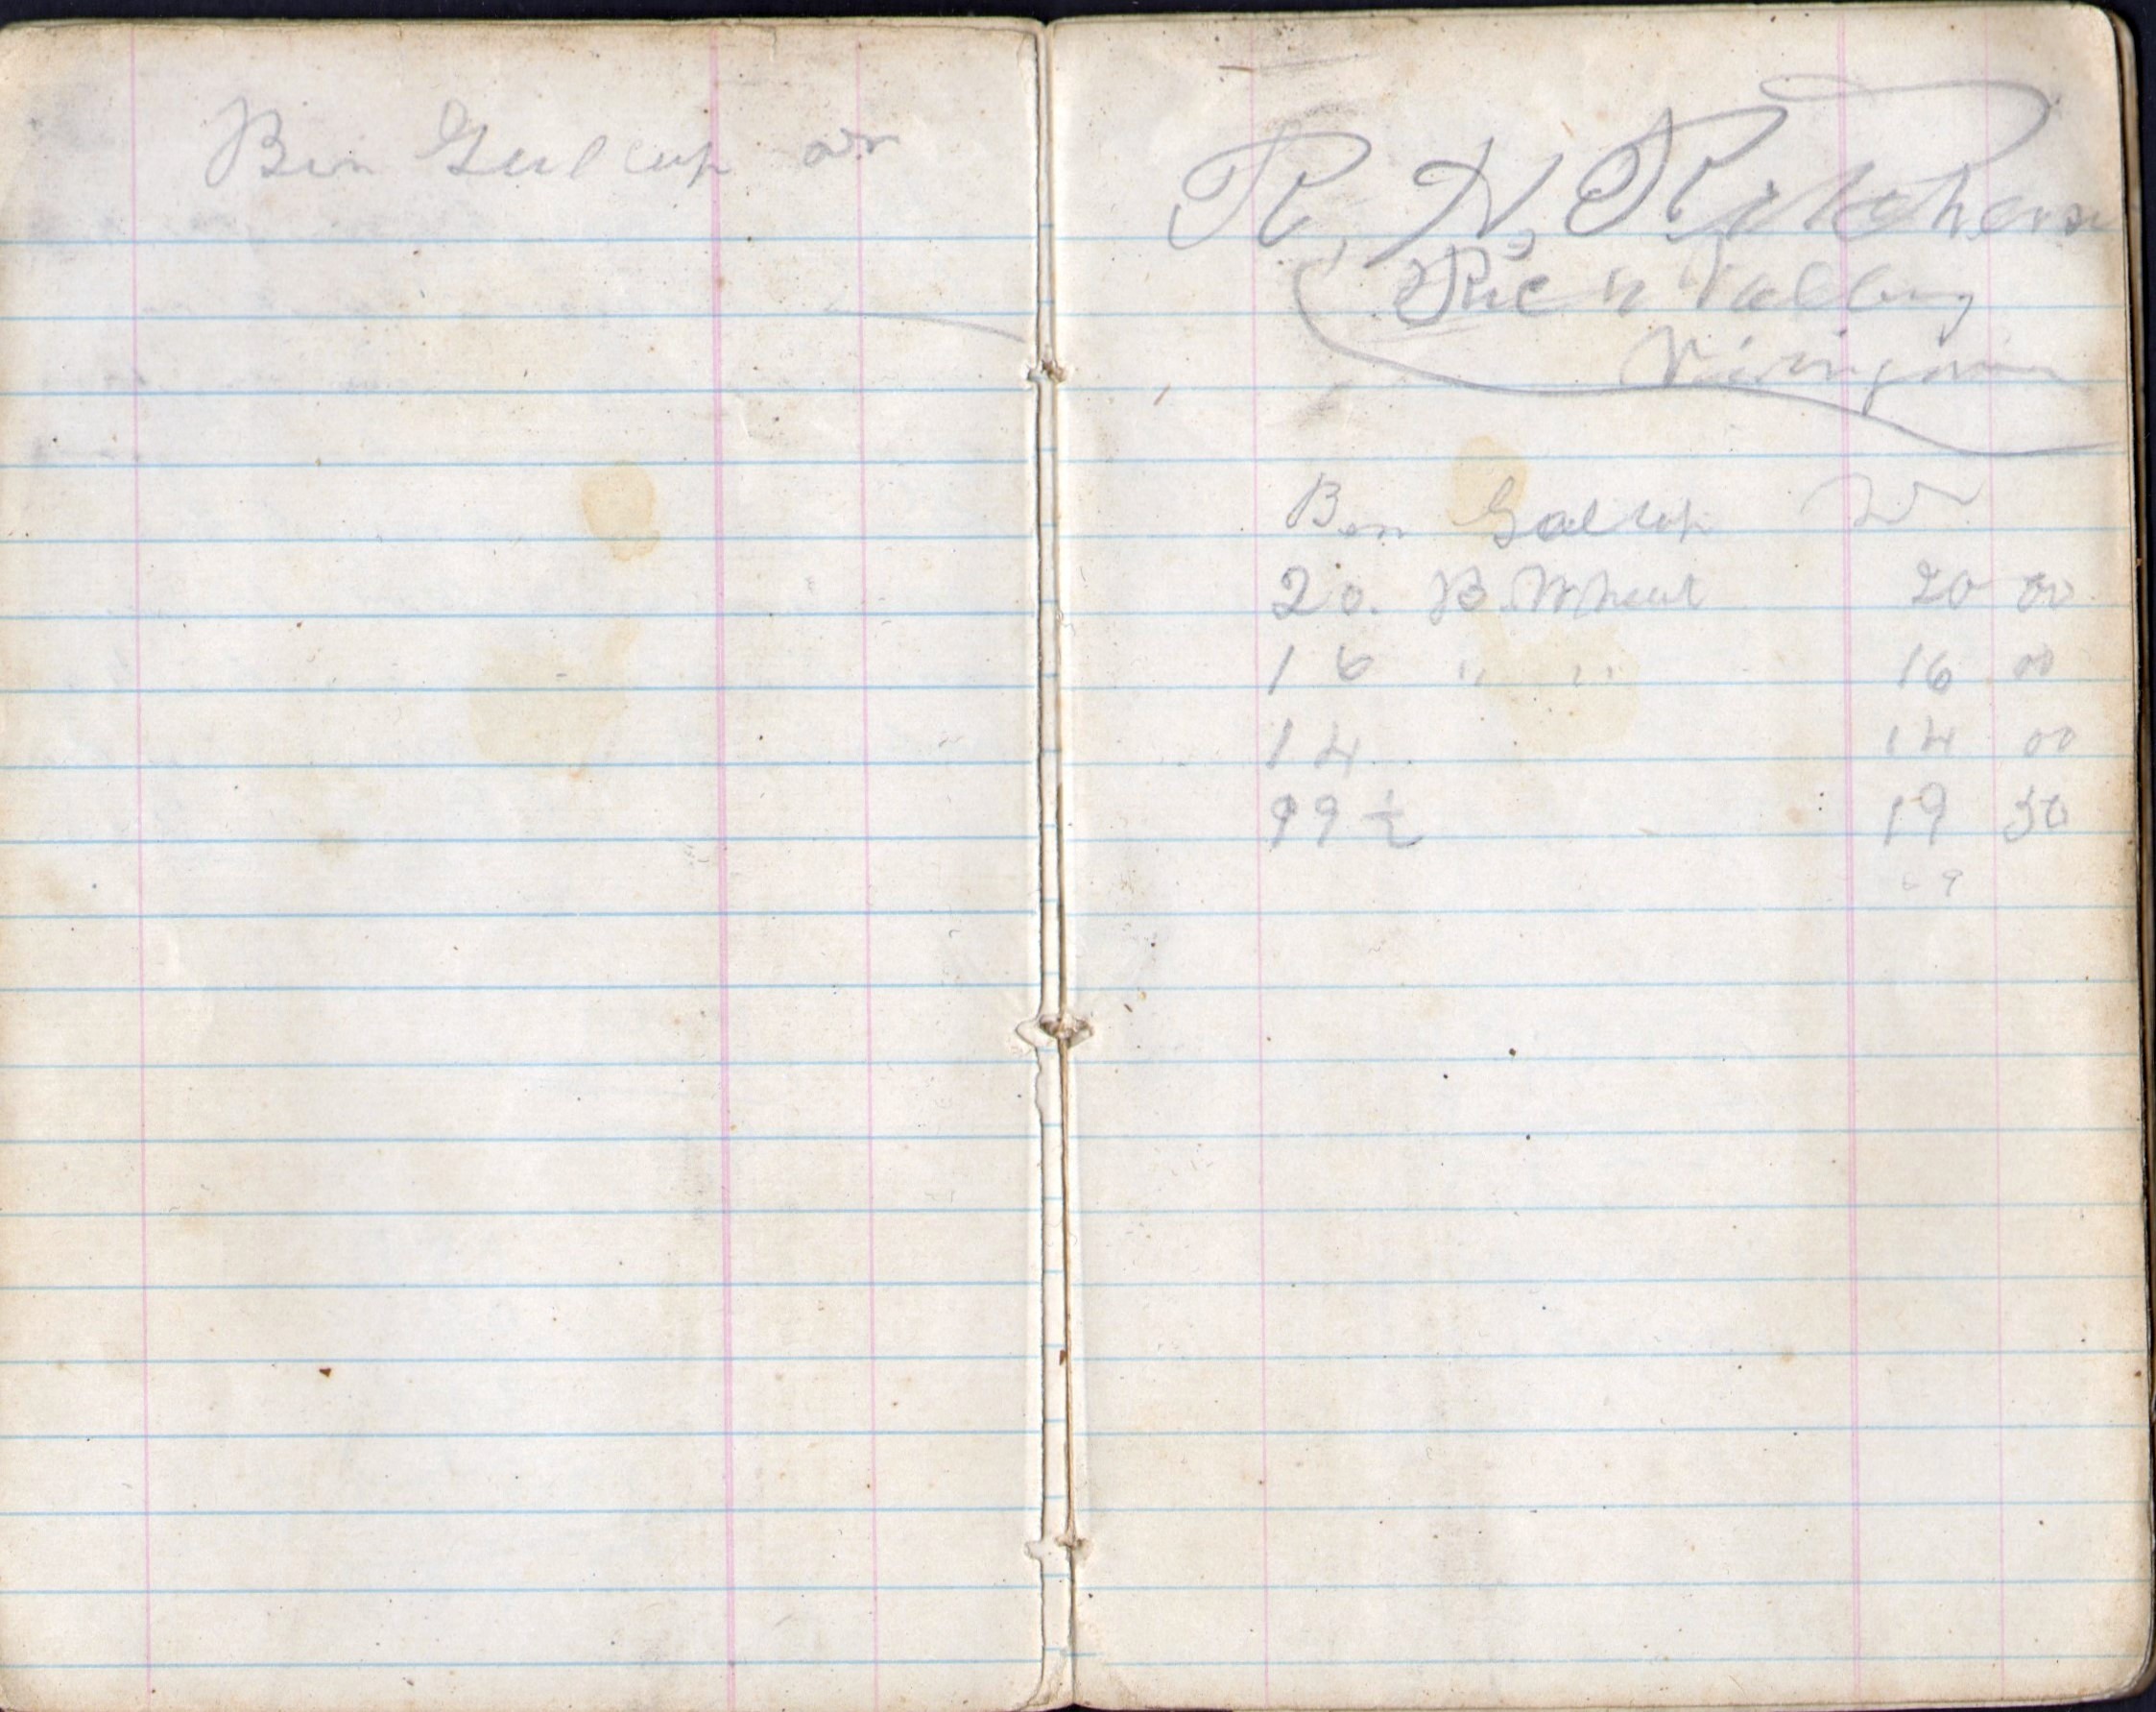 Ben Gallup
R, N, Ritcherson
Rich Valley
Virginia
Ben Gallup Dr
20. B. Wheat 20 00
16 " " 16 00
14 14 00
99 ½ 19 50
69